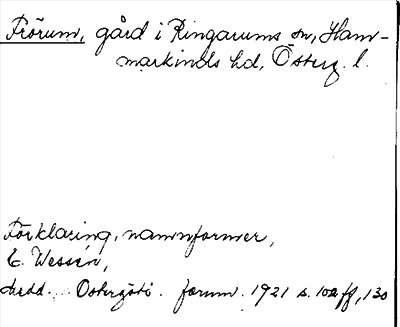 Frörum, gård i Ringarums sn, Ham-
markinds hd, Österg. l.
Förklaring, namnformer,
E. Wessén,
Medd. Östergötl. fornm. 1921 s. 102 ff, 130